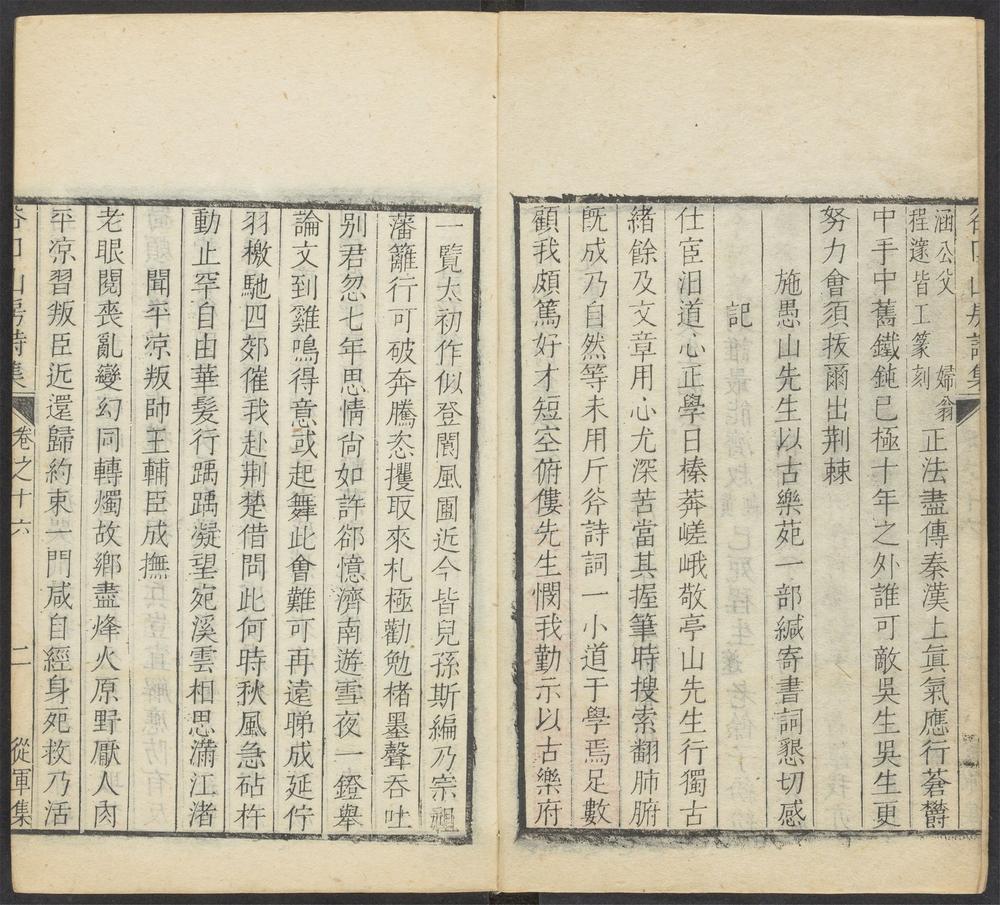 涵公父婦翁
程邃皆工篆刻
正法盡傳秦漢上眞氣應行蒼欝
中手中舊鐵鈍已極十年之外誰可敵吳生吳生更
努力會須拔爾出荆棘
施愚山先生以古樂苑一部緘寄書詞懇切感
記
仕宦汨道心正學日榛莽嵯峨敬亭山先生行獨古
緒餘及文章用心尤深苦當其握筆時搜索翻肺腑
旣成乃自然等未用斤斧詩詞一小道于學焉足數
顧我頗篤好才短空俯僂先生憫我勤示以古樂府
一覽太初作似登閬風圃近今皆兒孫斯編乃宗祖
藩籬行可破奔騰恣攫取來札極勸勉楮墨聲吞吐
别君忽七年思情尙如許郤憶濟南游雪夜一鐙舉
論文到雞鳴得意或起舞此會難可再遠睇成延佇
羽檄馳四郊催我赴荆楚借問此何時秋風急砧杵
動止罕自由華髮行踽踽凝望宛溪雲相思滿江渚
聞平凉叛帥王輔臣成撫
老眼閱喪亂變幻同轉燭故鄉盡烽火原野厭人肉
平凉習叛臣近還歸約束一門咸自經身死救乃活
谷口山房詩集 卷之十六 二 從軍集